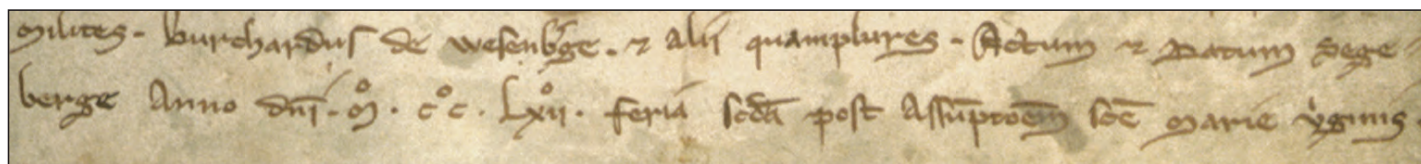 milites. burchardus de wesenb'ge. ⁊ alii quamplures. Actum ⁊ Datum Sege-
berge Anno dn̄i. m̊. c̊c. lxii̊. feria scd̄a post Assūptōem̄ sc̄e marie v'ginis